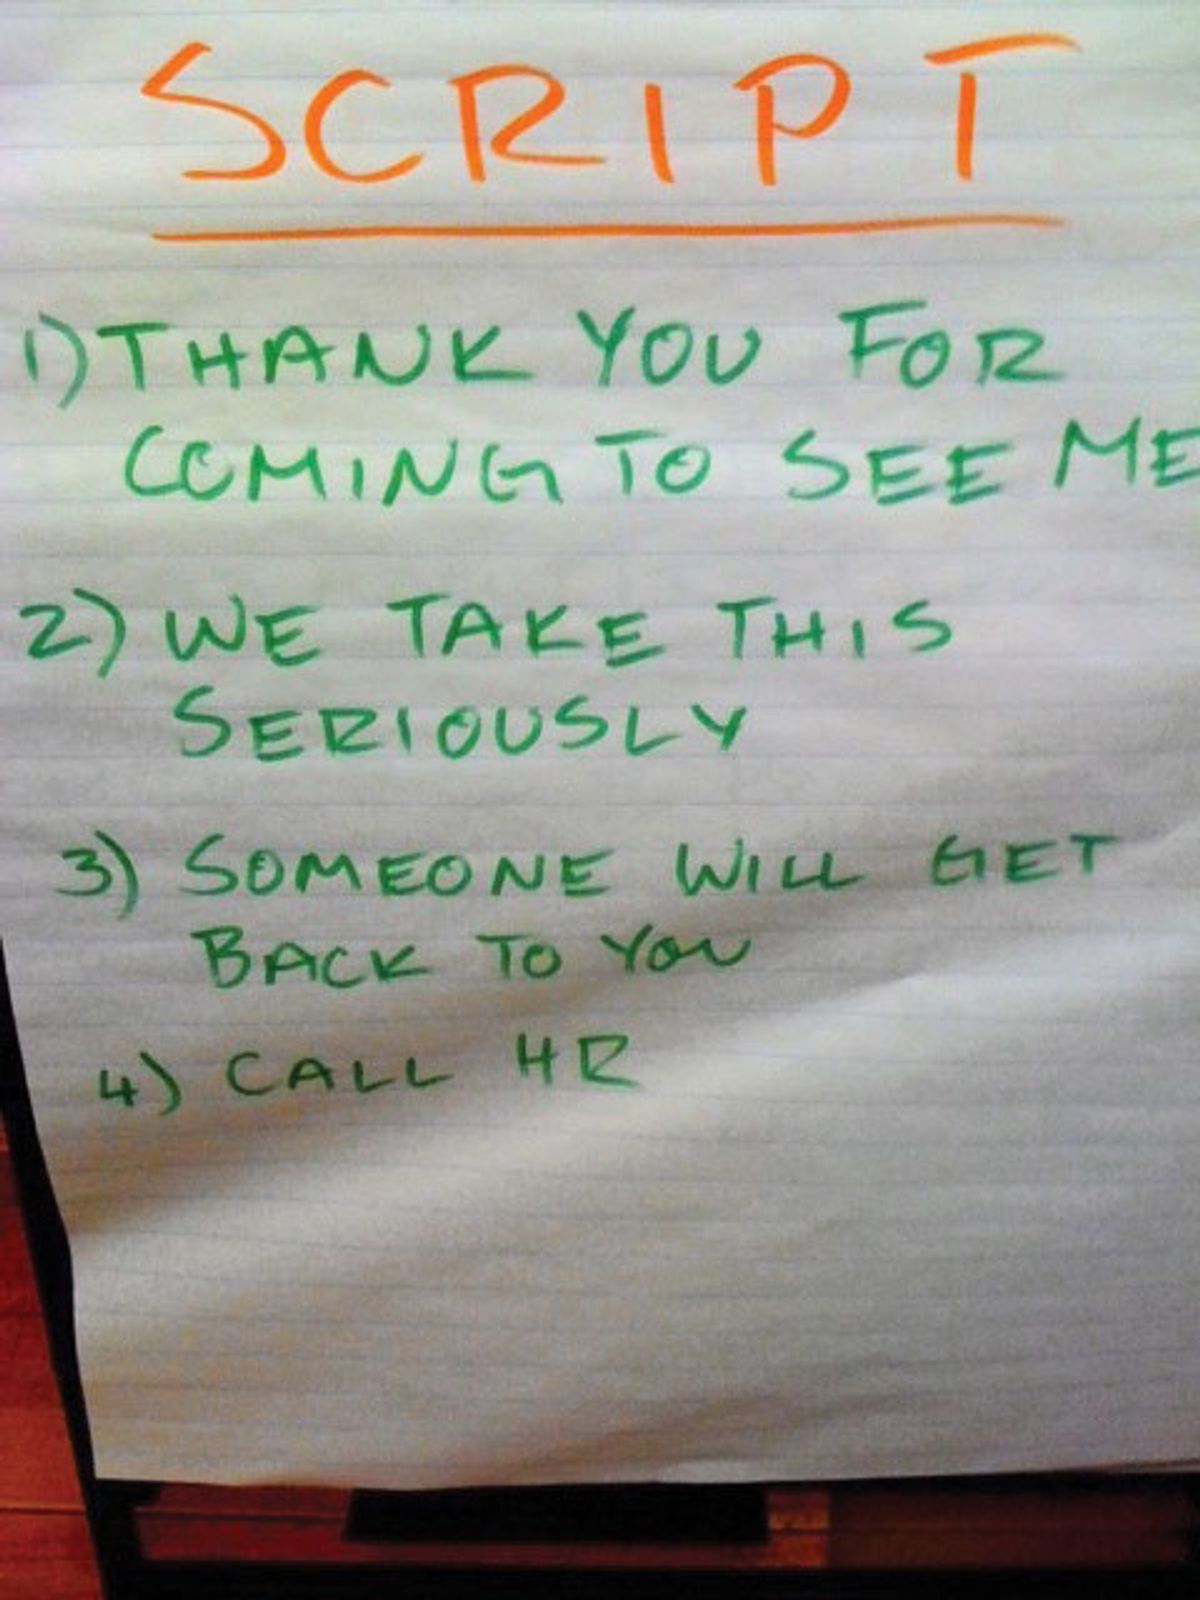 SCRIPT
1) THANK YOU FOR
COMING TO SEE ME
2) WE TAKE THIS
SERIOUSLY
3) SOMEONE WILL GET
BACK TO YOU
4) CALL HR